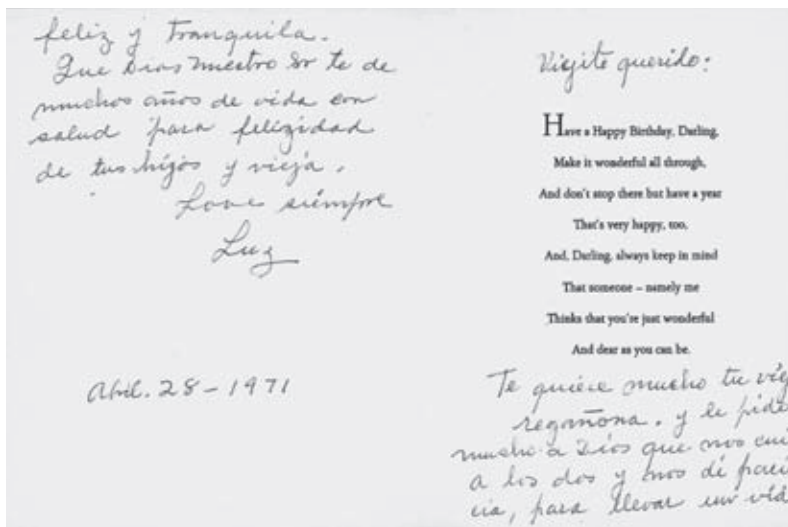 feliz y tranquila.
Que Dios nuestro Sr te de
muchos años de vida con
salud para felizidad
de tus hijos y vieja.
Love siempre
Luz
Abril. 28 - 1971
Viejito querido:
Have a Happy Birthday, Darling,
Make it wonderful all through,
And don't stop there but have a year
That's very happy, too,
And, Darling, always keep in mind
That someone – namely me
Thinks that you're just wonderful
And dear as you can be.
Te quiere mucho tu viej
regañona. y le pide
mucho a Dios que nos cui
a los dos y nos dé paci
cia, para llevar una vid